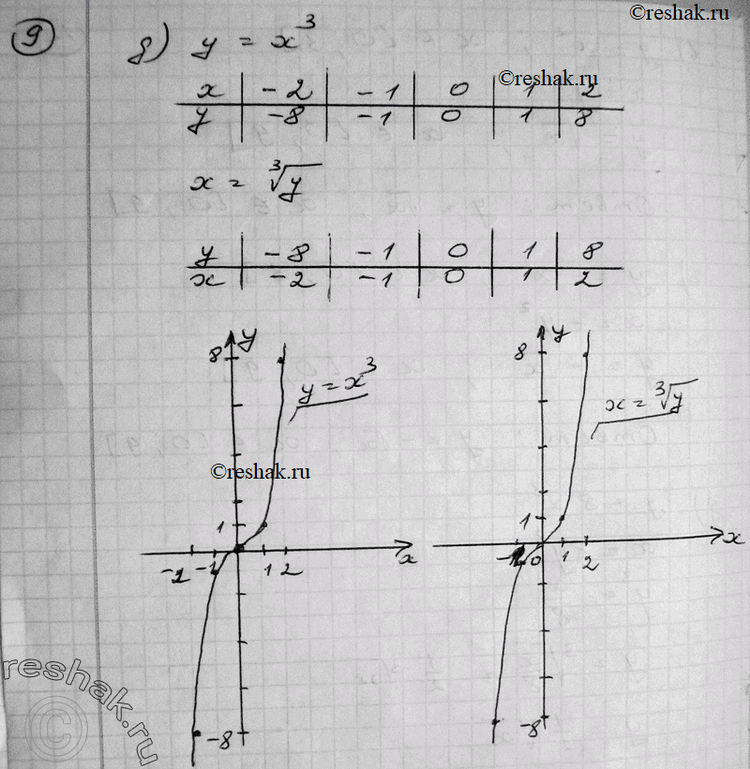 ©reshak.ru
9 б) y = x³
©reshak.ru
x | -2 | -1 | 0 | 1 | 2
y | -8 | -1 | 0 | 1 | 8
x = ∛y
y | -8 | -1 | 0 | 1 | 8
x | -2 | -1 | 0 | 1 | 2
8 y y = x³
1
-2 -1 1 2 x
-8
8 y x = ∛y
1
0 1 2 x
-8
©reshak.ru
reshak.ru
©